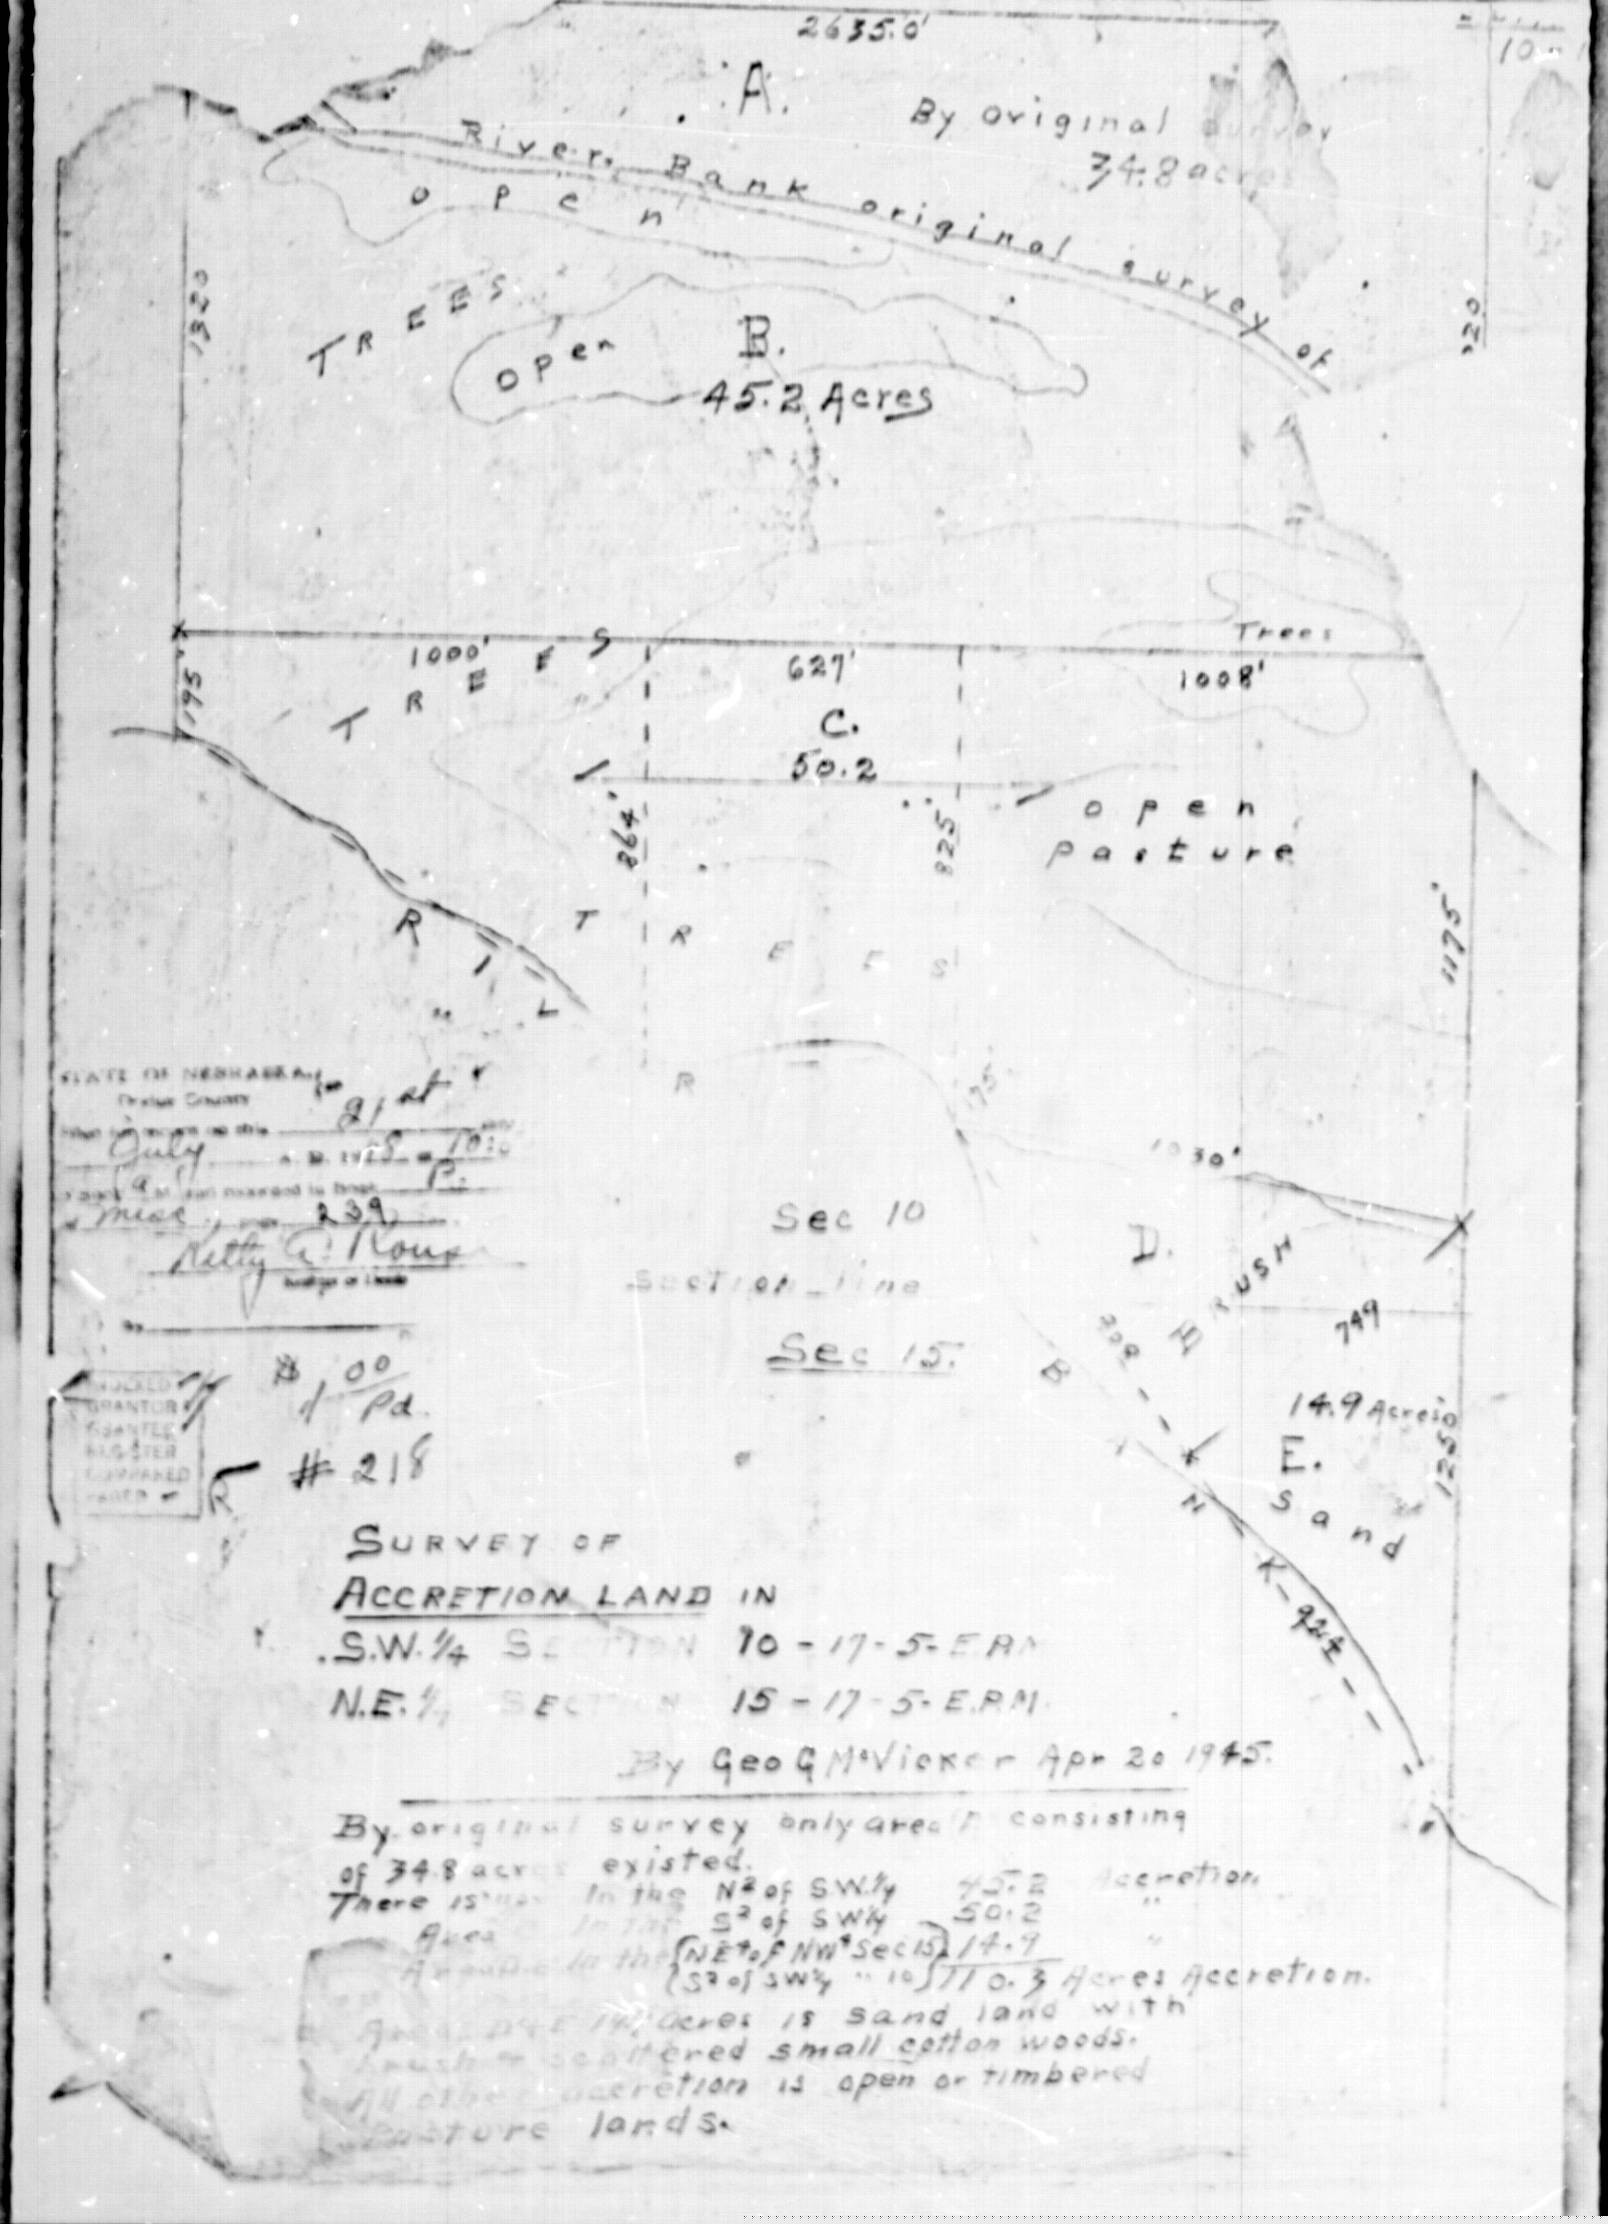 2635.0'
10
A.
By original survey
34.8 acres
River Bank original survey of
open
1320
TREES
open
B.
45.2 Acres
Trees
1000'
627'
1008'
195'
TREES
C.
50.2
864'
825'
open
pasture
1175'
TREES
R
STATE OF NEBRASKA
County
21st
July
10:
P.
misc
239
1030'
Sec 10
section line
Sec 15.
D.
BRUSH
749
$1 00
Pd.
GRANTOR
GRANTEE
REGISTER
COMPARED
PAGED
# 218
14.9 Acres
E.
Sand
1250
BANK
922
SURVEY OF
ACCRETION LAND IN
S.W. 1/4 SECTION 10-17-5-E.P.M
N.E. 1/4 SECTION 15-17-5-E.P.M.
By Geo G McVicker Apr 20 1945.
By original survey only area A consisting
of 34.8 acres existed.
There is now in the N2 of S.W.1/4 45.2 Accretion
Area in the S2 of SW1/4 50.2 "
in the {NE4 of NW4 Sec 15} 14.9 "
{S2 of SW1/4 " 10} 110.3 Acres Accretion.
acres is sand land with
scattered small cotton woods.
All other accretion is open or timbered
Pasture lands.